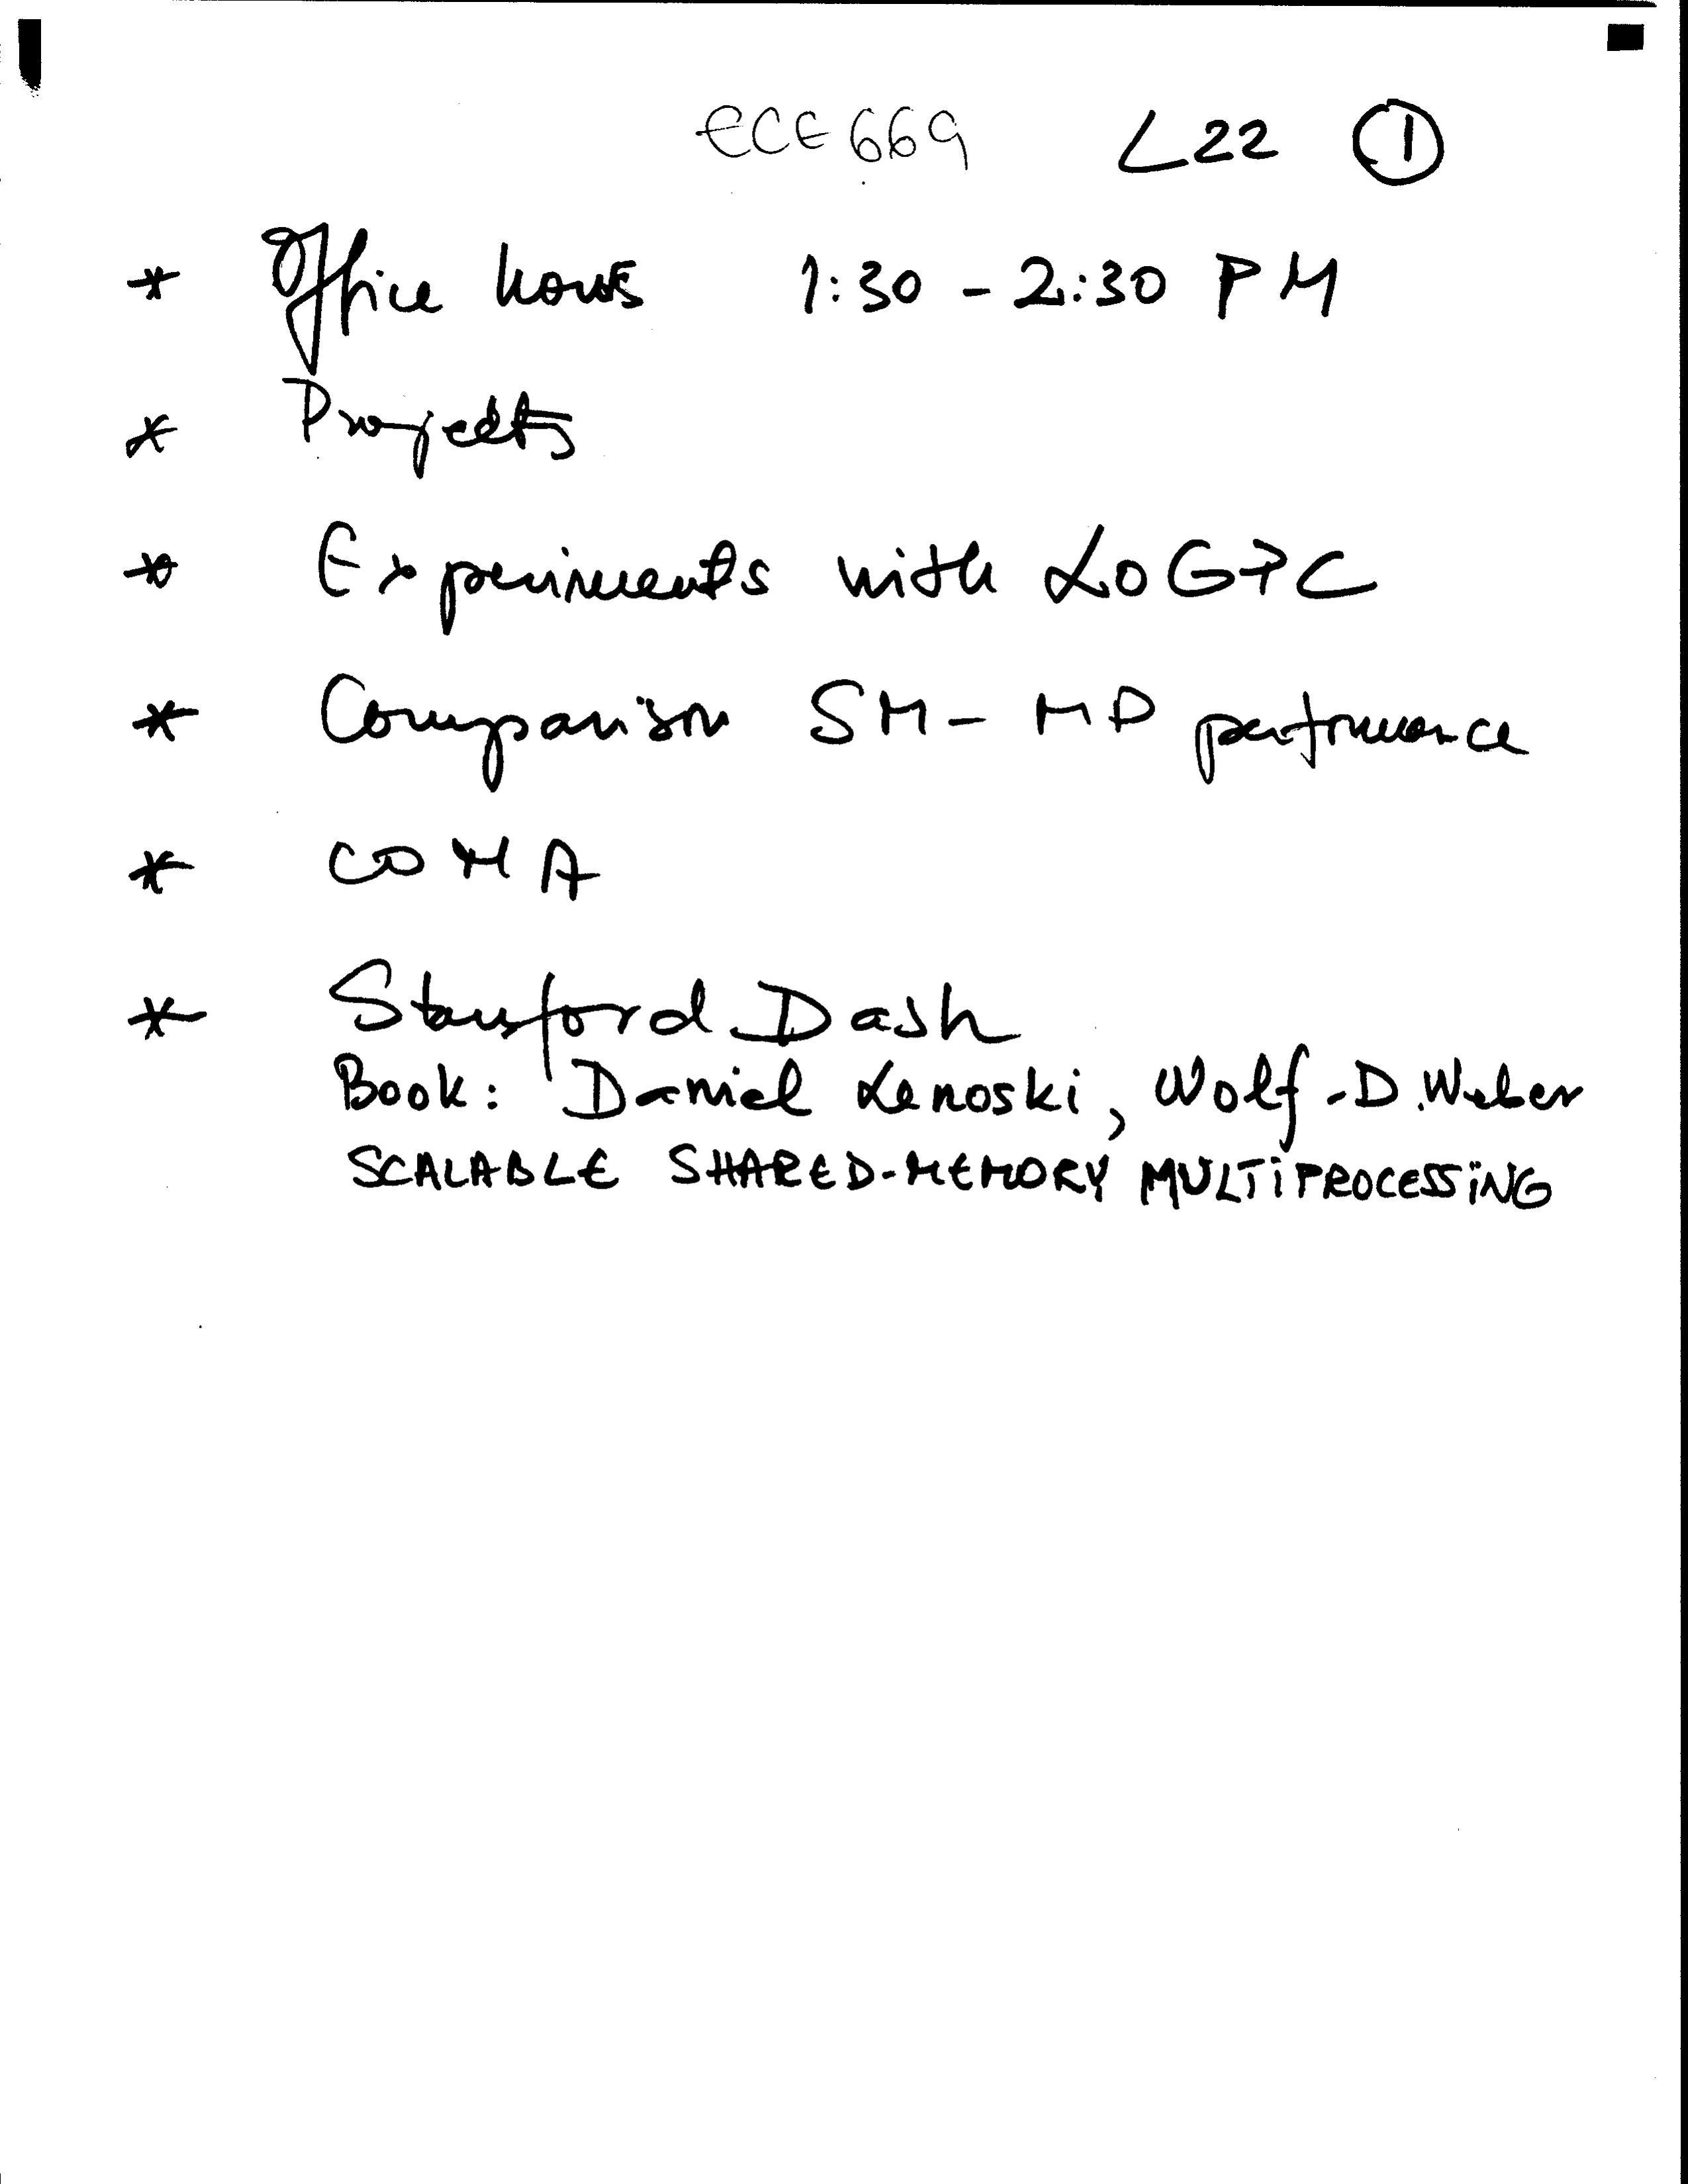 ECE669 L22 ①
* Office hours 1:30 - 2:30 PM
* Projects
* Experiments with LOGPC
* Comparison SM - MP performance
* COMA
* Stanford Dash
Book: Daniel Lenoski, Wolf-D. Weber
SCALABLE SHARED-MEMORY MULTIPROCESSING